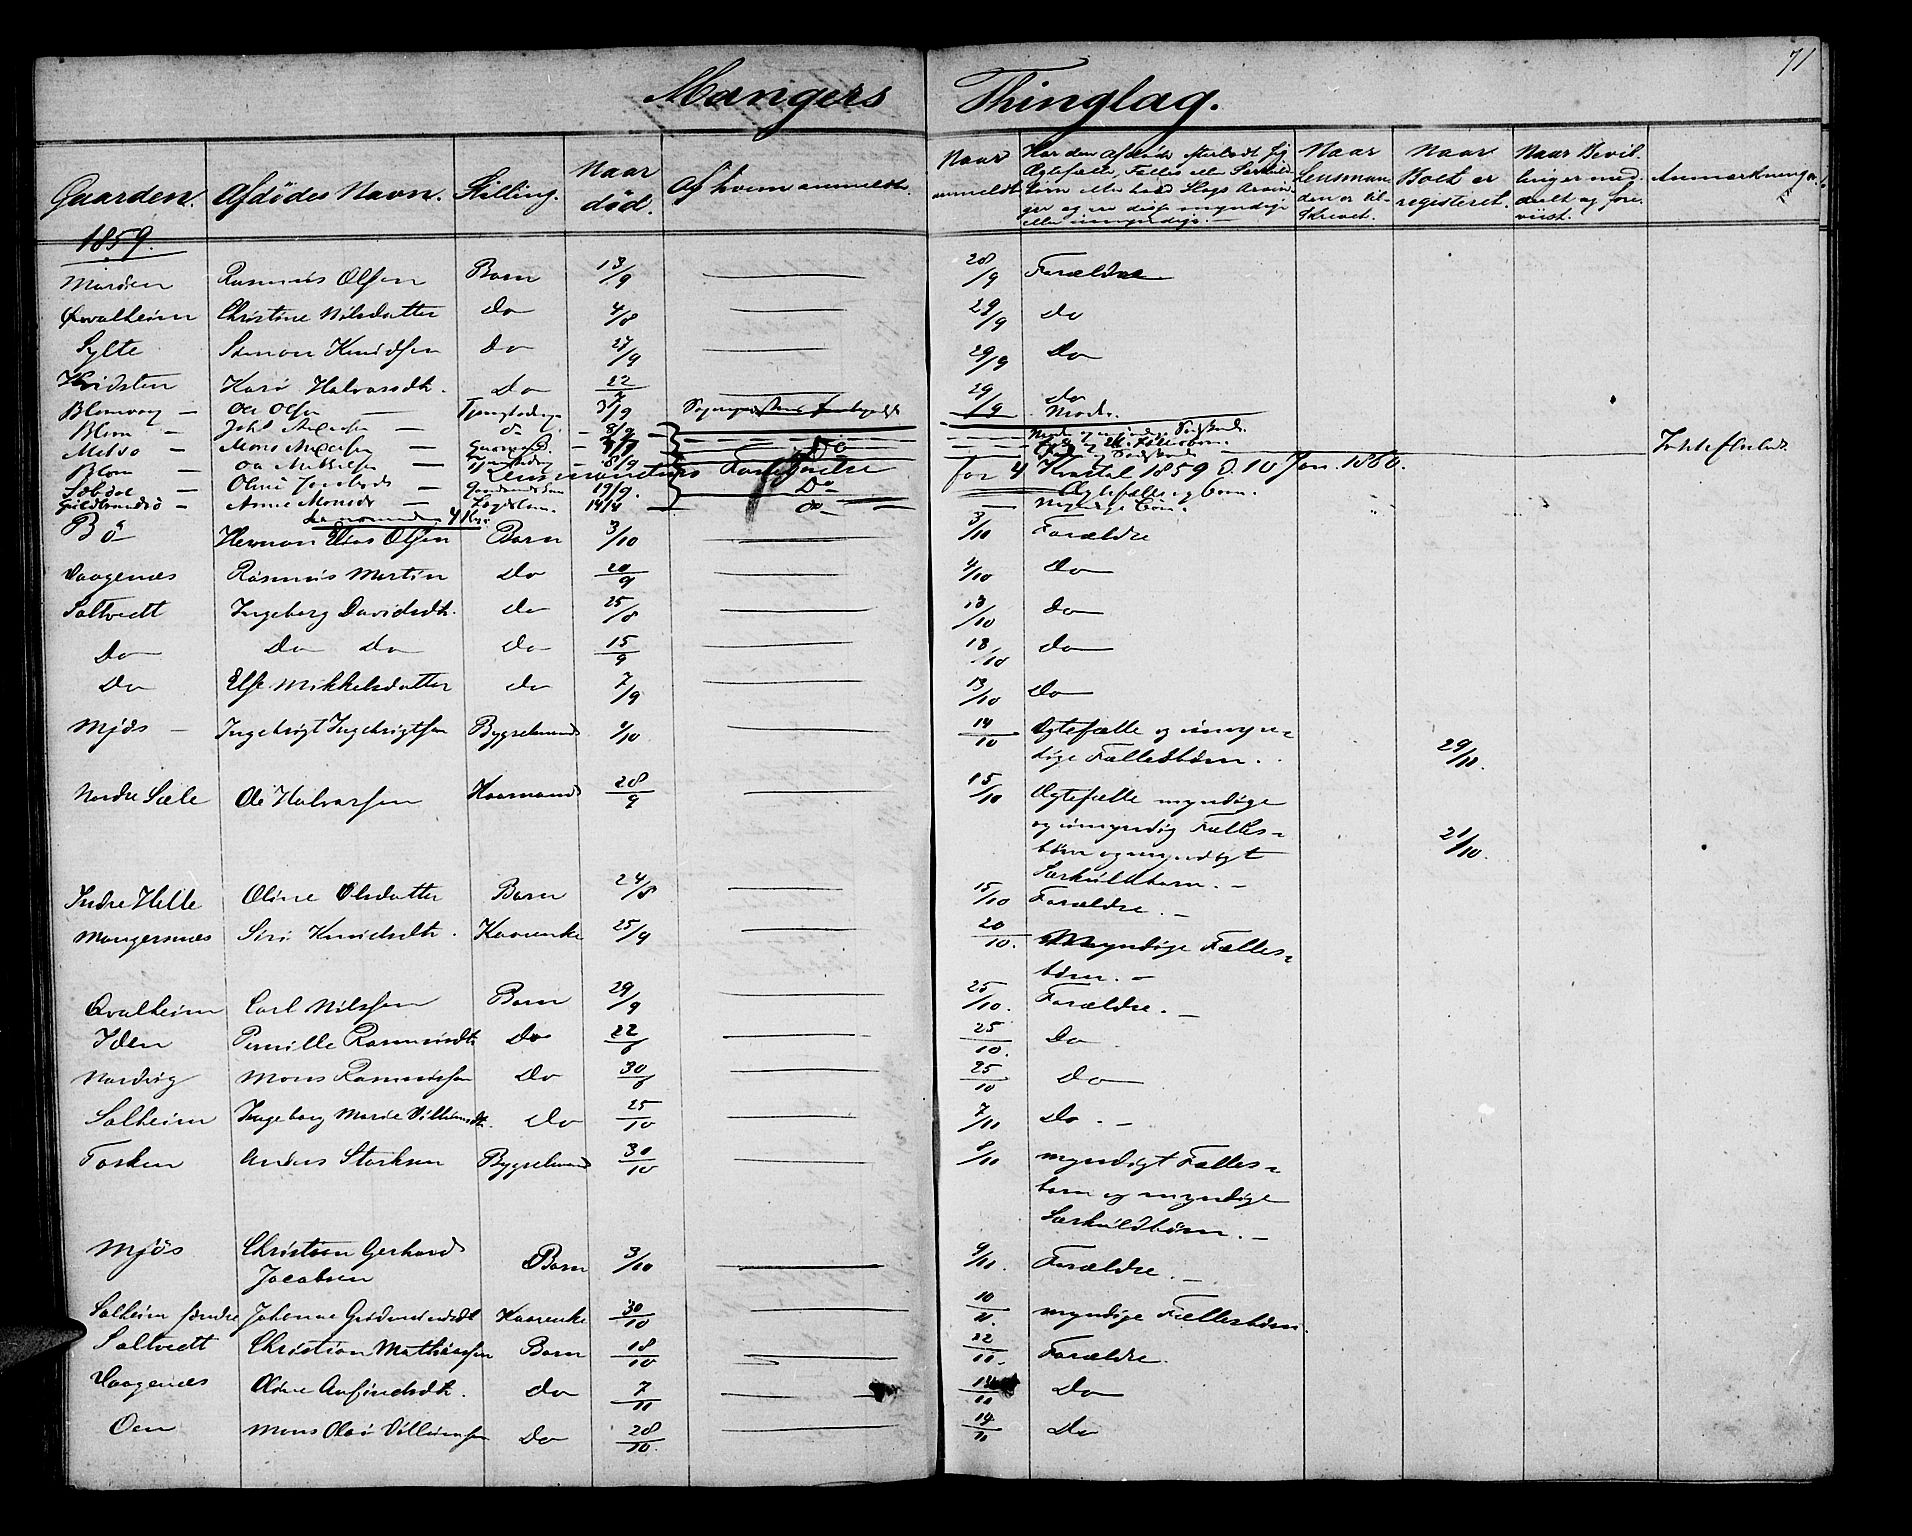 71
Mangers Thinglag.
Gaarden. Afdødes Navn. Stilling. Naar død. Af hvem anmeldt. Naar anmeldt. Har den Afdøde efterladt sig Ægtefælle, Fælles eller Særkuldbørn eller hvad Slags Arvinger og er disse myndige eller umyndige. Naar Lensmanden er tilskrevet. Naar Boet er registeret. Naar Bevillinger meddeelt og foreviist. Anmærkninger.
1859.
Rasmus Olsen Barn 13/9 28/9 Forældre
Qvalheim Christine Nilsdatter Do 4/8 29/9 do
Sylte Simon Knudsen Do 27/9 29/9 Do
Kari Halvorsdtr. Do 29/9 do
Blomvaag Ole Olsen 3/9 Moder.
Blom 8/9
Mons
Blom 8/9
Lensmandens Fortegnelse for 4 Kvartal 1859 d. 10 Jan. 1860.
19/9. Do Ægtefælle og Børn.
Anne Monsdr 14/4 Do myndige Børn.
Bö Herman Elias Olsen Barn 3/10 3/10 Forældre
Vaagenæs Rasmus Martin Do 20/9 4/10 Do
Saltvedt Ingeborg Davidsdtr. do 25/8 13/10 Do
Do Do Do Do 15/9 18/10 do
Do Else Mikkelsdatter do 7/9 13/10 Do
Mjøs Ingebrigt Ingebrigtsen Bygselmand 4/10 14/10 Ægtefælle og umyn-
dige Fællesbørn. 29/10.
Nordre Sæle Ole Halvorsen Kaarmand 28/9 15/10 Ægtefælle myndige
og umyndig Fælles-
børn og myndigt 21/10.
Særkuldbarn.
Indre Helle Oline Olsdatter Barn 24/8 15/10 Forældre.
Mangersnæs Siri Knudsdtr. Kaarenke 25/9 20/10. Myndige Fælles-
børn.
Qvalheim Carl Nilssen Barn 29/9 25/10. Forældre.
Iden Pernille Rasmusdtr. Do 22/8 25/10. Do
Nordvig Mons Rasmussen Do 30/8 25/10 Do
Solheim Ingeborg Marie Villumsdtr. Do 25/10 7/11 Do.
Tosken Anders Storksen Bygselmand 30/10 9/11 myndigt Fælles-
barn og myndige
Særkuldbørn.
Mjøs Christian Gerhard Jacobsen Barn 3/10 9/11. Forældre.
Solheim søndre Johanne Gudmundsdtr Kaarenke 30/10 10/11. myndige Fællesbørn.
Saltvedt Christian Mathiassen Barn 18/10 22/11. Forældre.
Vaagenæs Oline Anfindsdtr. Do 7/11 Do
Oen Mons Olai Villumsen Do 28/10. 14/11 Do